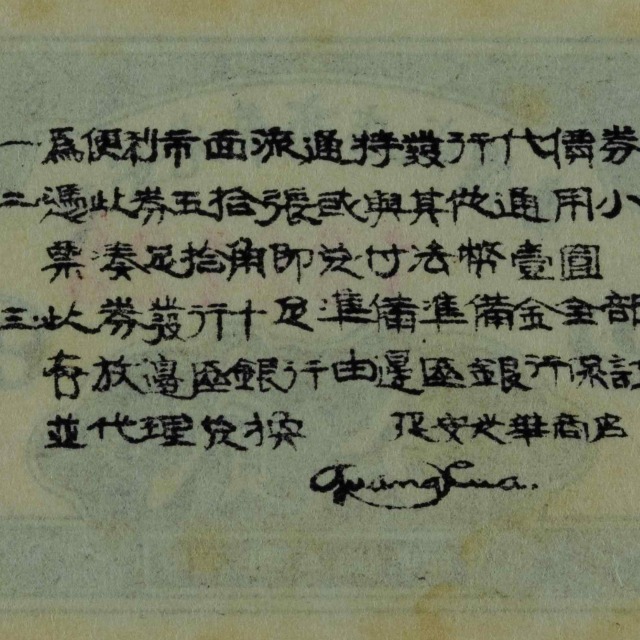 一為便利市面流通特發行代價券
二憑此券五拾張或與其他通用小
票湊足拾角即兌付法幣壹圓
三此券發行十足準備準備金全部
存放邊區銀行由邊區銀行保証
並代理兌換 延安光華商店
Guang Hua.